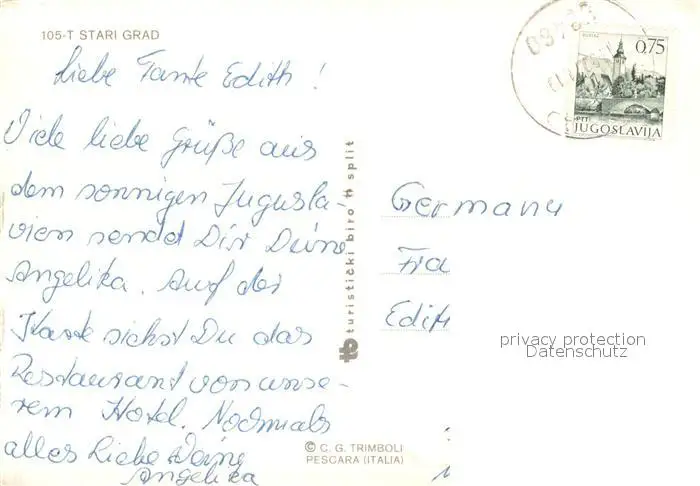 105-T STARI GRAD
Liebe Tante Edith !
Viele liebe Grüße aus
dem sonnigen Jugusla-
vien sendet Dir Deine
Angelika. Auf der
Karte siehst Du das
Restaurant von unse-
rem Hotel. Nochmals
alles Liebe Deine
Angelika
turistički biro h split
tb
0,75
PTT
JUGOSLAVIJA
Germany
Fra
Edith
privacy protection
Datenschutz
© C. G. TRIMBOLI
PESCARA (ITALIA)